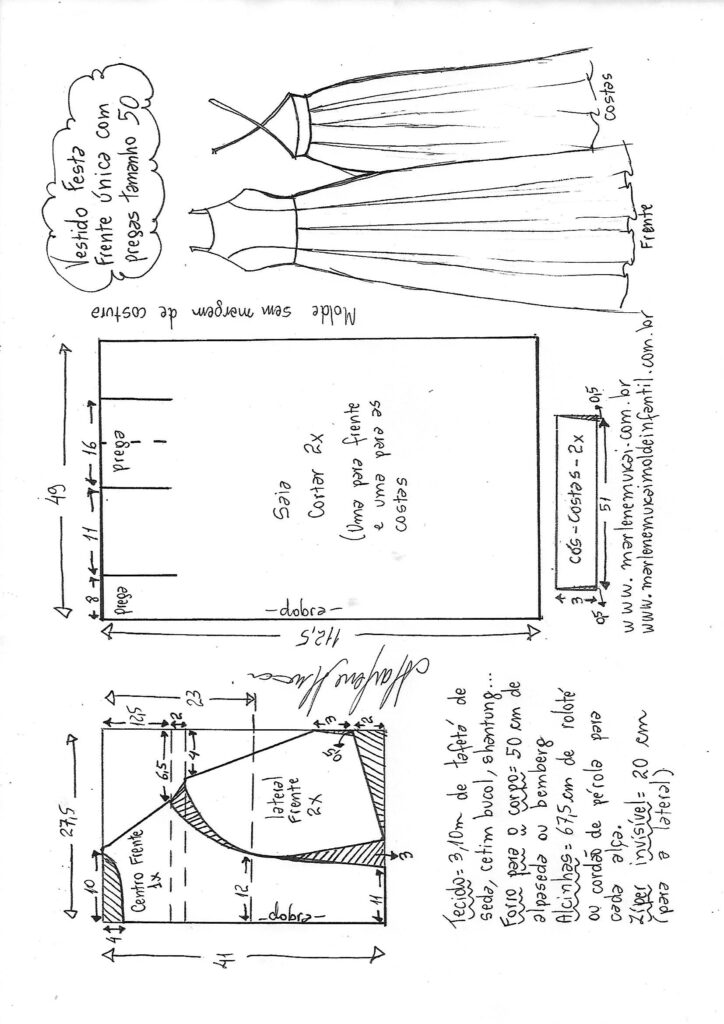 Vestido Festa
Frente única com
pregas tamanho 50
Costas
Frente
Molde sem margem de costura
49
8
11
16
prega
prega
Saia
Cortar 2x
(Uma para frente
e uma para as
costas
-dobra-
112,5
cós-costas-2x
51
3
0,5
0,5
www.marlenemukai.com.br
www.marlenemukaimoldeinfantil.com.br
Marlene Mukai
27,5
10
4
12,5
2
23
6,5
4
Centro Frente
1x
lateral
Frente
2x
3
2
0,5
12
-dobra-
11
3
41
Tecido= 3,10m de tafetá de
seda, cetim bucol, shantung...
Forro para o corpo= 50 cm de
abaseda ou bemberg
Alcinhas= 67,5 cm de roloté
ou cordão de pérola para
cada alça.
Zíper invisível= 20 cm
(para a lateral)